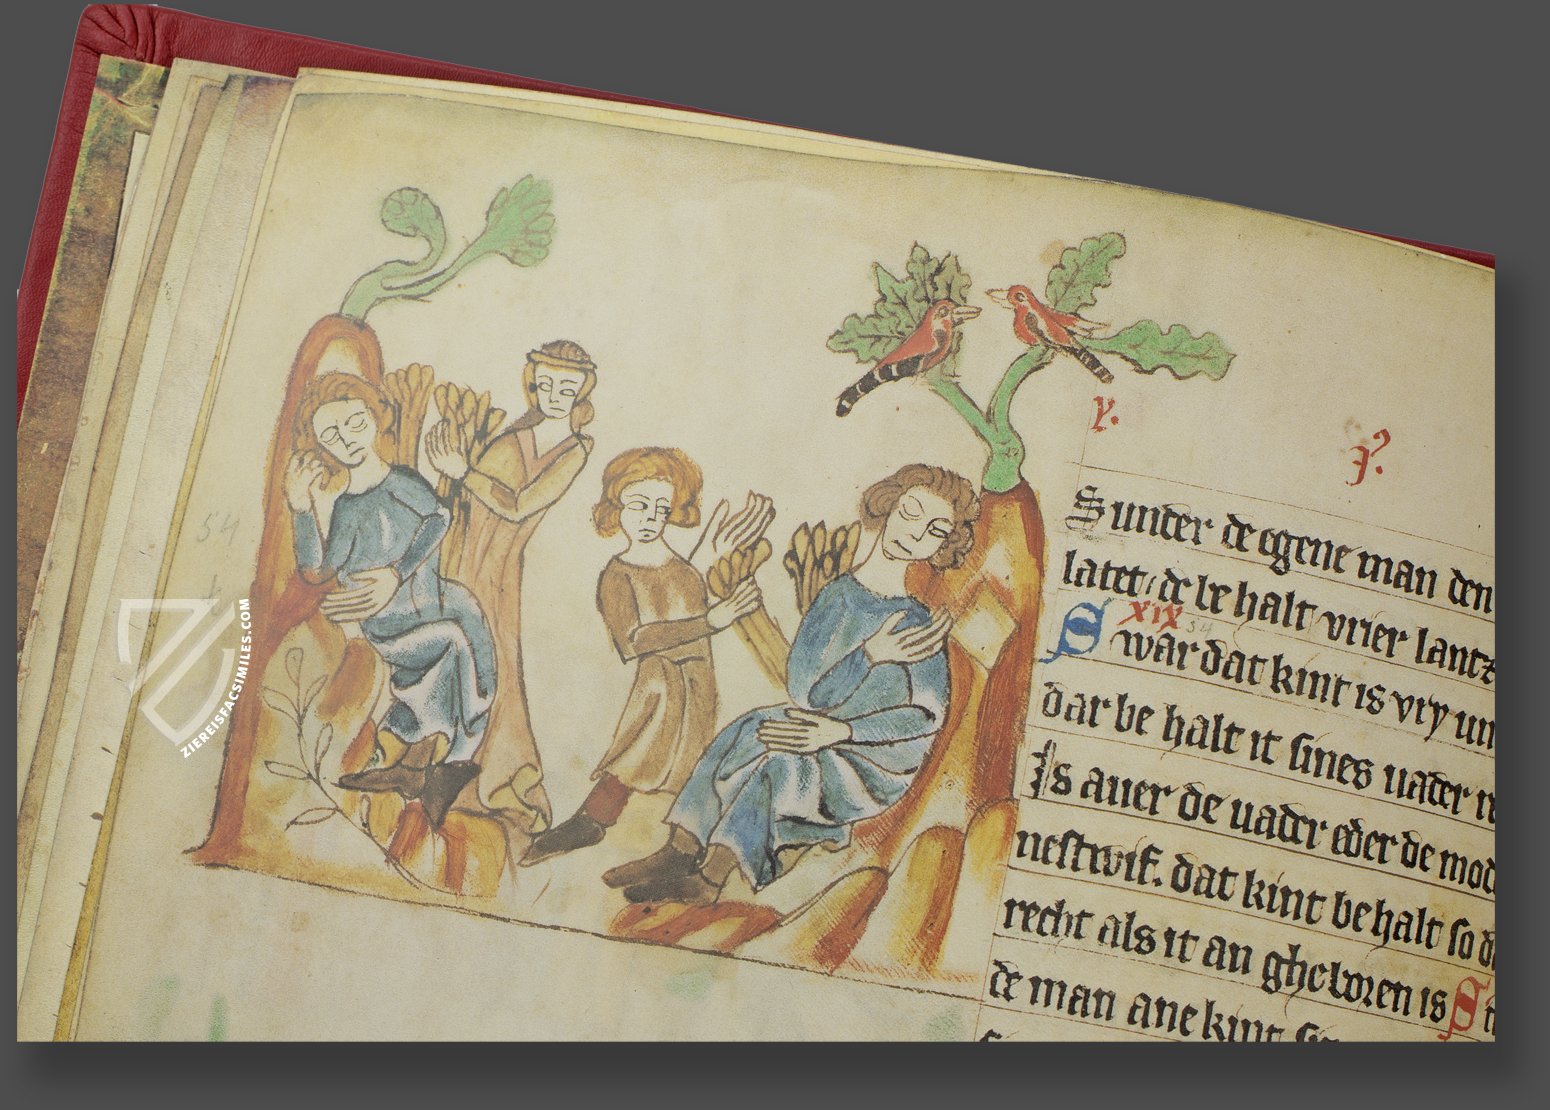 54
ZIEREISFACSIMILES.COM
Sunder de egene man den
latet, de be halt vrier lantz
XIX
Swar dat kint is vry un
dar be halt it sines uader
Is auer de uader eder de mod
nestwif. dat kint behalt so
recht als it an gheboren is S
de man ane kint